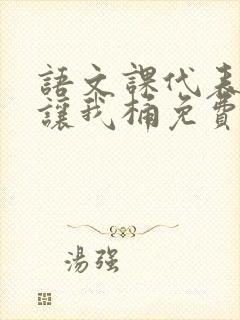 語文課代表
讓我桶免費
湯強